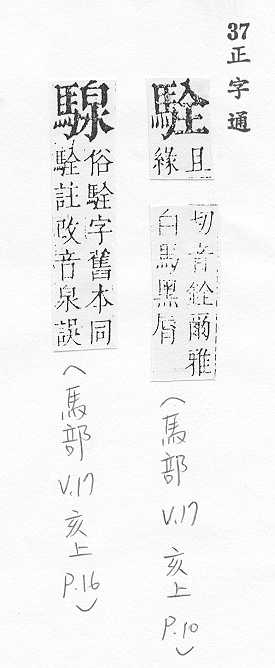 37正字通
駩
且緣
切音銓爾雅
白馬黑脣
(馬部 V.17 亥上 P.10)
騡
俗駩字舊本同
駩註改音泉誤
(馬部 V.17 亥上 P.16)